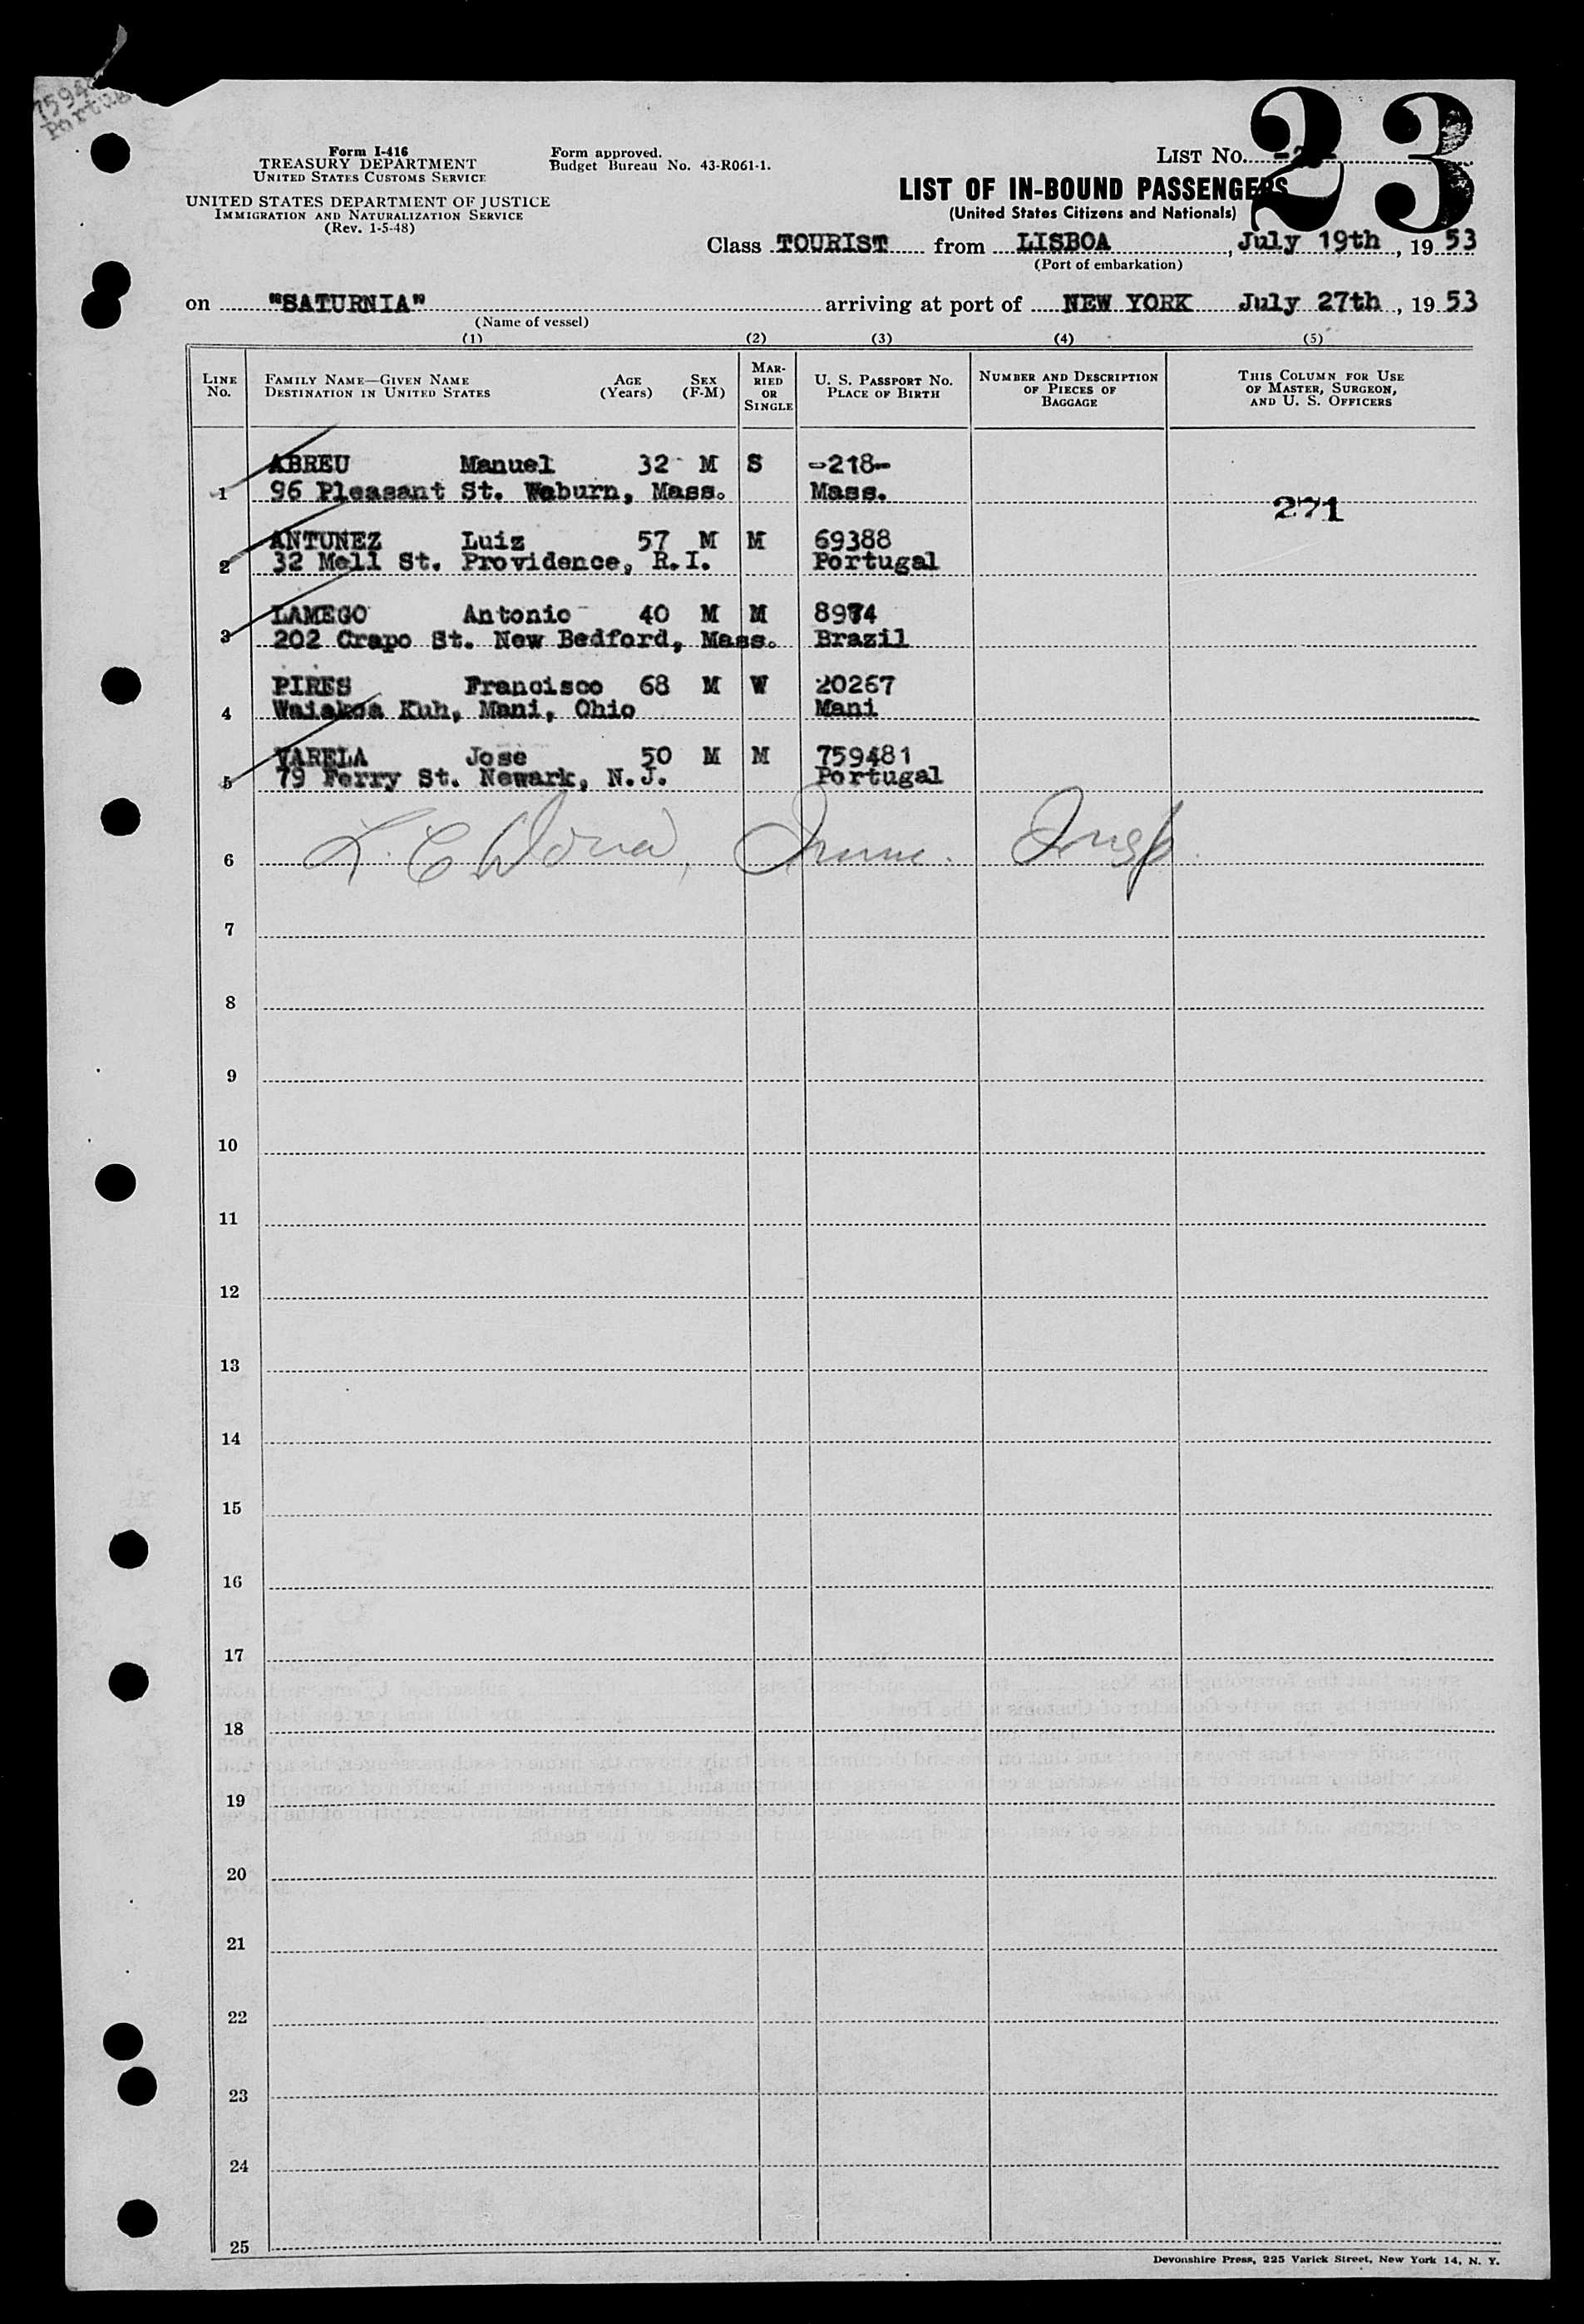 75948
Portug
23
Form I-416
TREASURY DEPARTMENT
UNITED STATES CUSTOMS SERVICE
UNITED STATES DEPARTMENT OF JUSTICE
IMMIGRATION AND NATURALIZATION SERVICE
(Rev. 1-5-48)
Form approved.
Budget Bureau No. 43-R061-1.
LIST No.
LIST OF IN-BOUND PASSENGERS
(United States Citizens and Nationals)
Class TOURIST from LISBOA, July 19th, 1953
(Port of embarkation)
on "SATURNIA" arriving at port of NEW YORK July 27th, 1953
(Name of vessel)
(1) (2) (3) (4) (5)
LINE No. FAMILY NAME—GIVEN NAME DESTINATION IN UNITED STATES AGE (Years) SEX (F-M) MARRIED OR SINGLE U. S. PASSPORT No. PLACE OF BIRTH NUMBER AND DESCRIPTION OF PIECES OF BAGGAGE THIS COLUMN FOR USE OF MASTER, SURGEON, AND U. S. OFFICERS
ABREU Manuel 32 M S -218-
1 96 Pleasant St. Woburn, Mass. Mass.
271
ANTUNEZ Luiz 57 M M 69388
2 32 Mell St. Providence, R.I. Portugal
LAMEGO Antonio 40 M M 8974
3 202 Crapo St. New Bedford, Mass. Brazil
PIRES Francisco 68 M W 20267
4 Waiakoa Kuh, Mani, Ohio Mani
VARELA Jose 50 M M 759481
5 79 Ferry St. Newark, N.J. Portugal
6 Imm. Insp.
7
8
9
10
11
12
13
14
15
16
17
18
19
20
21
22
23
24
25
Devonshire Press, 225 Varick Street, New York 14, N. Y.